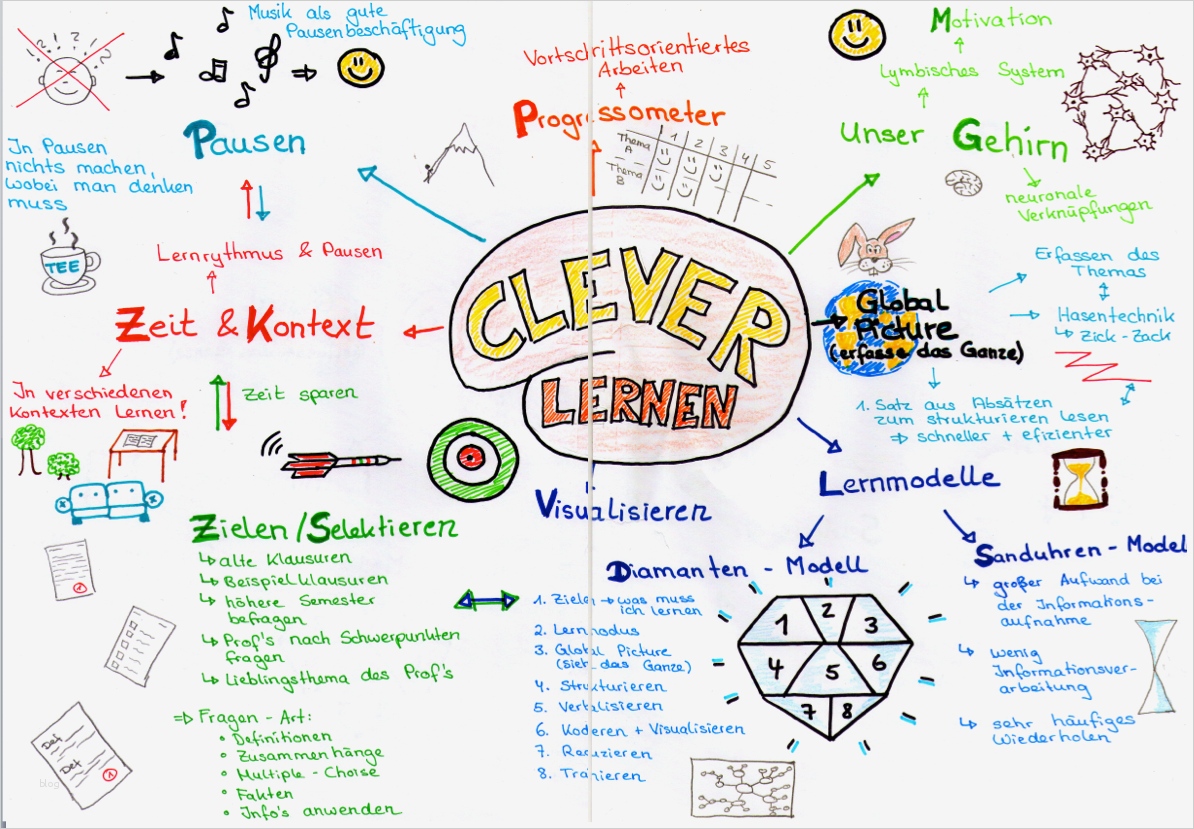 CLEVER
LERNEN
Musik als gute
Pausenbeschäftigung
Pausen
In Pausen
nichts machen,
wobei man denken
muss
TEE
Vortschrittsorientiertes
Arbeiten
Progressometer
Thema A
Thema B
1 2 3 4 5
Motivation
Lymbisches System
Unser Gehirn
neuronale
Verknüpfungen
Lernrythmus & Pausen
Zeit & Kontext
In verschiedenen
Kontexten Lernen!
Zeit sparen
Global
Picture
(erfasse das Ganze)
Erfassen des
Themas
Hasentechnik
↳ Zick-Zack
1. Satz aus Absätzen
zum strukturieren lesen
⇒ schneller + efizienter
Zielen/Selektieren
↳ alte Klausuren
↳ Beispielklausuren
↳ höhere Semester
befragen
↳ Prof's nach Schwerpunkten
fragen
↳ Lieblingsthema des Prof's
⇒ Fragen-Art:
• Definitionen
• Zusammenhänge
• Multiple-Choise
• Fakten
• Info's anwenden
Def
Def
1
1
Visualisieren
Lernmodelle
Diamanten - Modell
1. Ziele → was muss
ich lernen
2. Lernmodus
3. Global Picture
(sieh das Ganze)
4. Strukturieren
5. Verbalisieren
6. Kodieren + Visualisieren
7. Reduzieren
8. Trainieren
1 2 3
4 5 6
7 8
Sanduhren-Model
↳ großer Aufwand bei
der Informations-
aufnahme
↳ wenig
Informationsver-
arbeitung
↳ sehr häufiges
Wiederholen